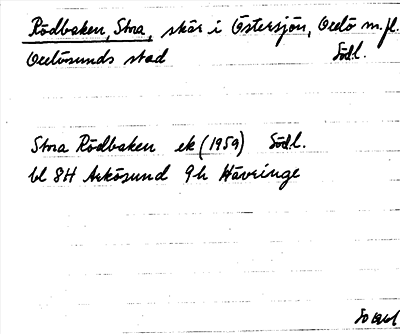 Rödbaken, Stora, skär i Östersjön, Oxelö m.fl.
Oxelösunds stad Södl.
Stora Rödbaken ek (1959) Södl.
bl 8H Arkösund 9h Hävringe